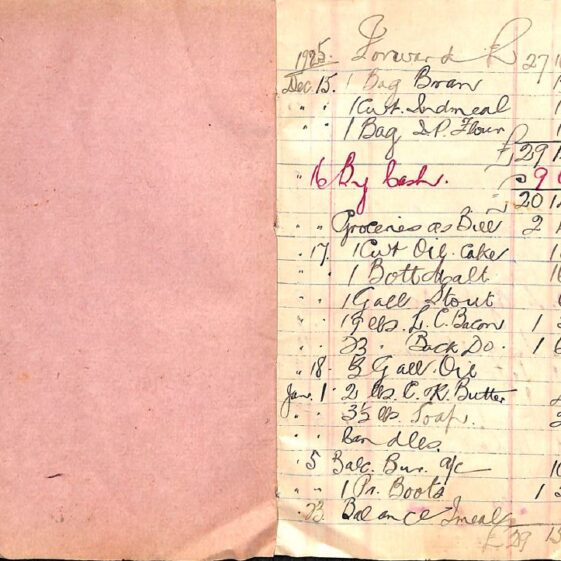 1925. Forward £ 27
Dec. 15. 1 Bag Bran
" " 1 Cwt. Indmeal
" " 1 Bag I.P. Flour
£ 29 1
" 16 By Cash. 9
20 1
" " Groceries as Bill 2
" 17. 1 Cwt Oil Cake
" " 1 Bott Malt
" " 1 Gall Stout
" " lbs. L. C. Bacon 1
" " Back Do. 1 6
" 18. Gall. Oil
Jan. 1. 2 lbs. C. R. Butter
" " 3½ lbs Soap.
" " Candles.
" 5 Balc. Bun. a/c
" " 1 Pr. Boots 1
" 23. Balance Imeal
£ 29 13